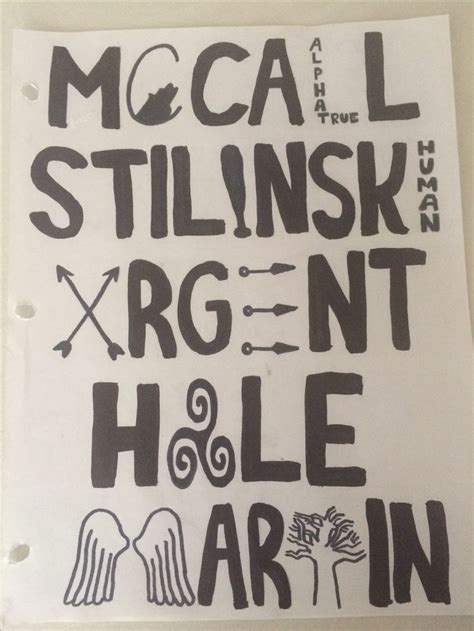 MCCALL
TRUE ALPHA
STILINSKI
HUMAN
ARGENT
HALE
MARTIN